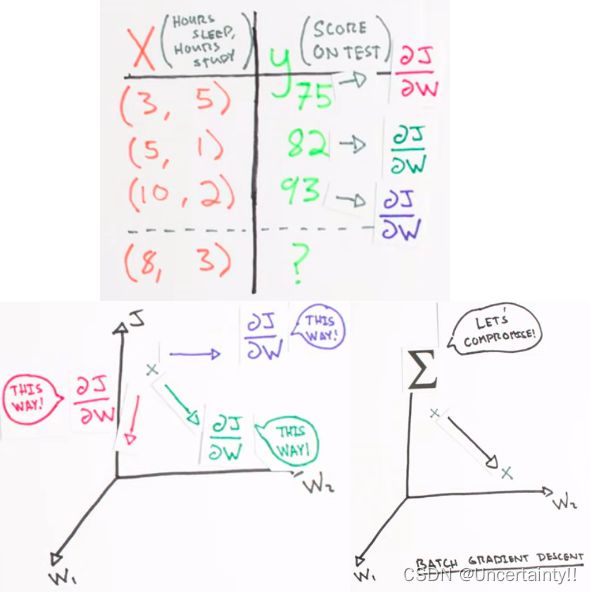 X (HOURS SLEEP, HOURS STUDY)
y (SCORE ON TEST)
(3, 5) 75 → ∂J/∂W
(5, 1) 82 → ∂J/∂W
(10, 2) 93 → ∂J/∂W
(8, 3) ?
J
∂J/∂W THIS WAY!
THIS WAY! ∂J/∂W
∂J/∂W THIS WAY!
W₂
W₁
LET'S COMPROMISE!
Σ
W₂
W₁
BATCH GRADIENT DESCENT
CSDN @Uncertainty!!